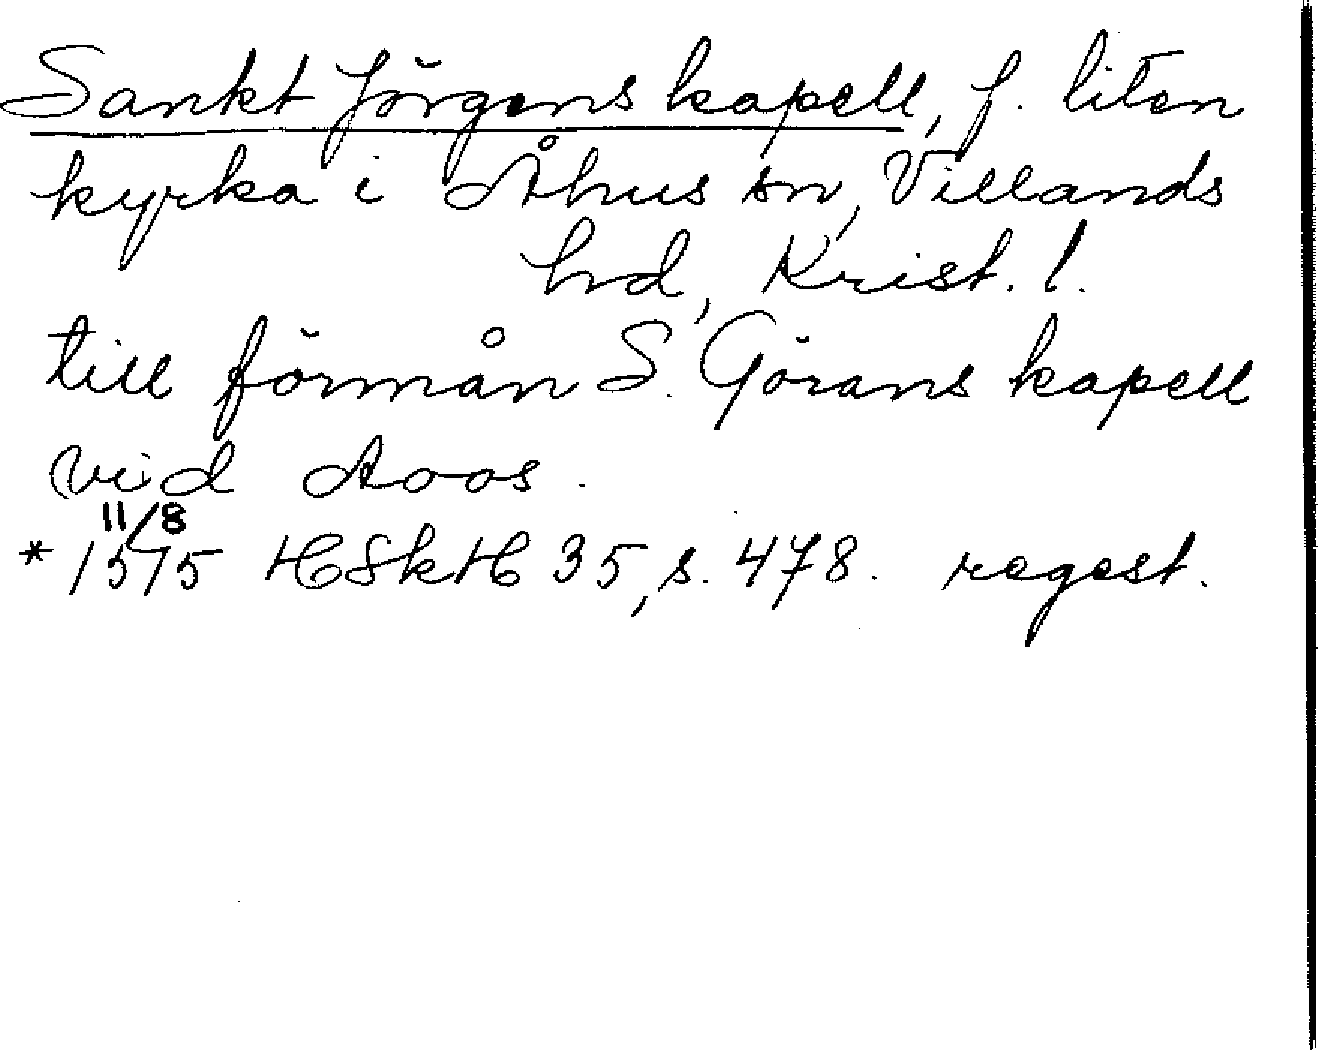 Sankt Jörgens kapell, f. liten
kyrka i Åhus sn, Villands
hd, Krist. l.
till förmån S. Görans kapell
vid Aoos.
11/8
*1575 HSkH 35, s. 478. regest.